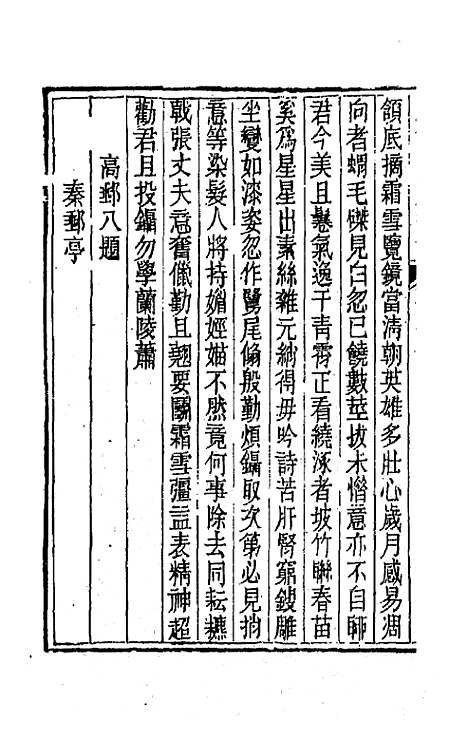 頷底摘霜雪覽鏡當清朝英雄多壯心歲月感易凋
向者蝟毛磔見白忽已饒數莖拔未愷意亦不自聊
君今美且鬈氣逸干青霄正看繞涿者坡竹聯春苗
奚為星星出素絲雜元綃得毋吟詩苦肝腎窮鎪雕
坐變如漆姿忽作翛殷勤煩鑷取次第必見抬
意等染髮人將持媚婬娼不然竟何事除去同耘穮
戟張丈夫意奮儠勤且翹要鬬霜雪彊益表精神超
勸君且投鑷勿學蘭陵蕭
高郵八題
秦郵亭